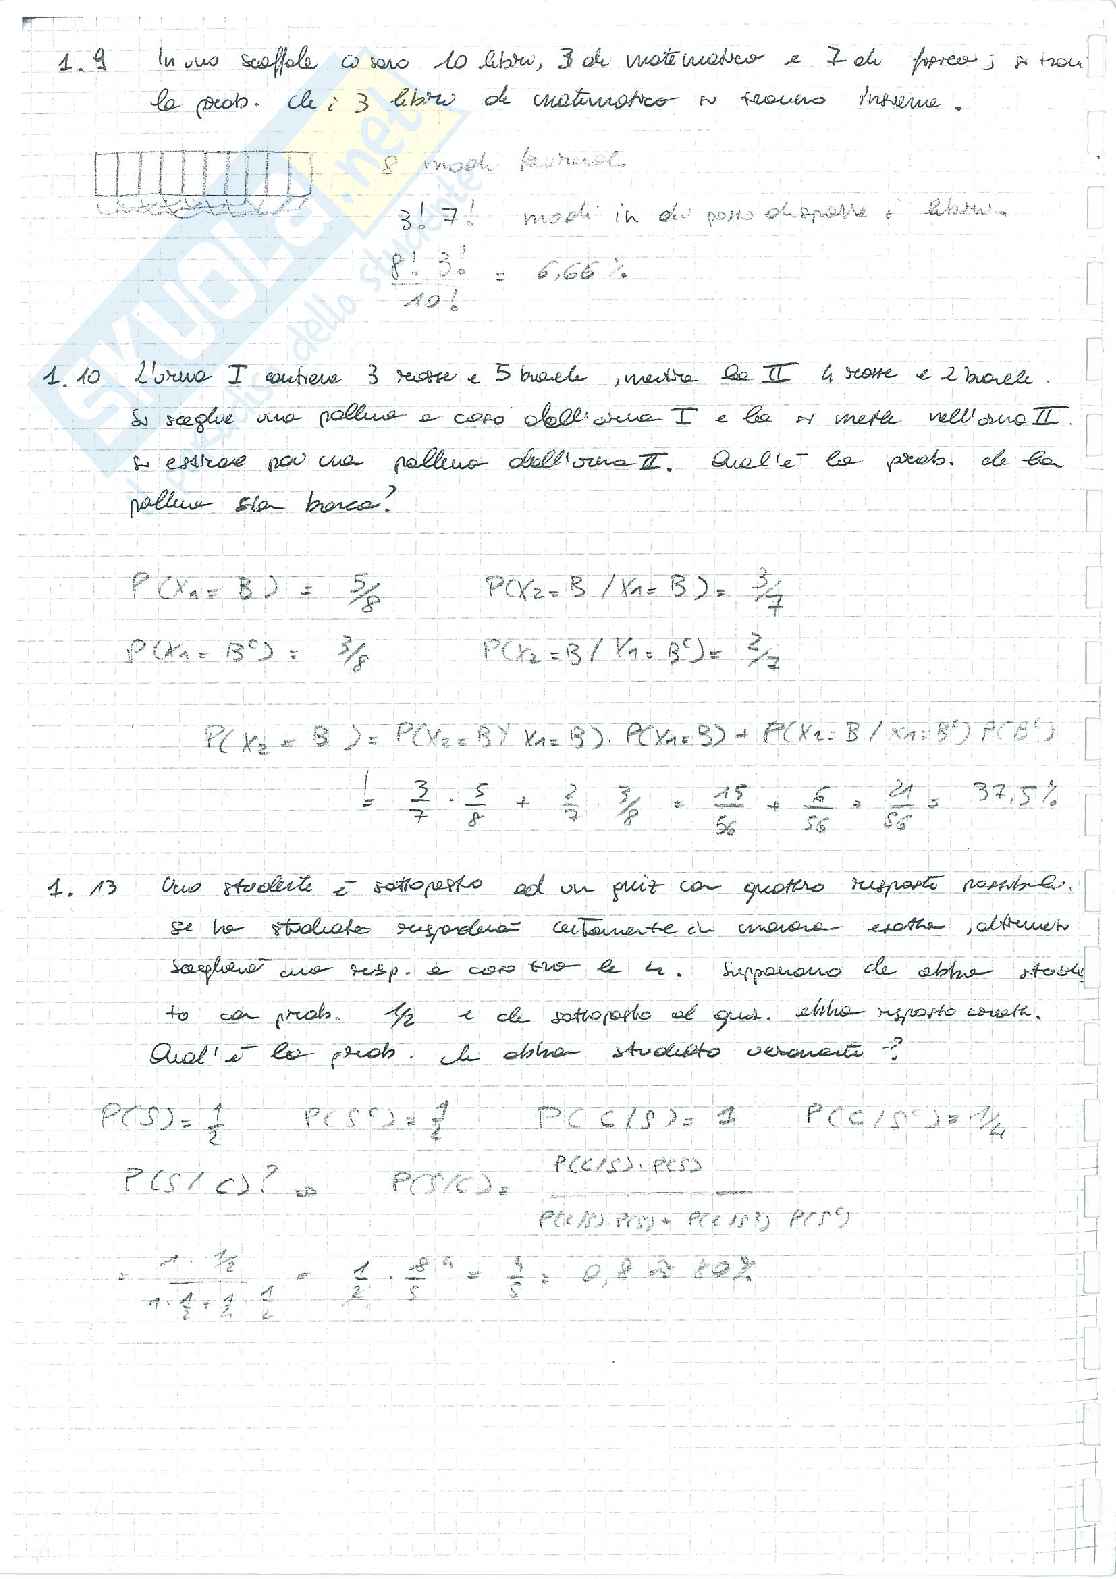 1.9 In uno scaffale ci sono 10 libri, 3 di matematica e 7 di fisica; si trovi
la prob. che i 3 libri di matematica si trovino insieme.
8 modi favorevoli
3! 7! modi in cui posso disporre i libri.
8! 3! / 10! = 6,66 %
1.10 L'urna I contiene 3 rosse e 5 bianche, mentre la II 4 rosse e 2 bianche.
Si sceglie una pallina a caso dall'urna I e la si mette nell'urna II.
Si estrae poi una pallina dall'urna II. Qual'è la prob. che la
pallina sia bianca?
P(X₁ = B) = 5/8 P(X₂ = B / X₁ = B) = 3/7
P(X₁ = Bᶜ) = 3/8 P(X₂ = B / X₁ = Bᶜ) = 2/7
P(X₂ = B) = P(X₂ = B / X₁ = B) · P(X₁ = B) + P(X₂ = B / X₁ = Bᶜ) P(Bᶜ)
= 3/7 · 5/8 + 2/7 · 3/8 = 15/56 + 6/56 = 21/56 = 37,5 %
1.13 Uno studente è sottoposto ad un quiz con quattro risposte possibili.
Se ha studiato risponderà certamente in maniera esatta, altrimenti
sceglierà una resp. a caso tra le 4. Supponiamo che abbia studia
to con prob. 1/2 e che sottoposto al quiz. abbia risposto corrett.
Qual'è la prob. che abbia studiato veramente?
P(S) = 1/2 P(Sᶜ) = 1/2 P(C/S) = 1 P(C/Sᶜ) = 1/4
P(S/C)? ⇒ P(S/C) = P(C/S) · P(S) / P(C/S) · P(S) + P(C/Sᶜ) P(Sᶜ)
= 1 · 1/2 / 1 · 1/2 + 1/4 · 1/2 = 1/2 · 8/5 = 4/5 = 0,8 ⇒ 80%
SKUOLA.net
dello studente